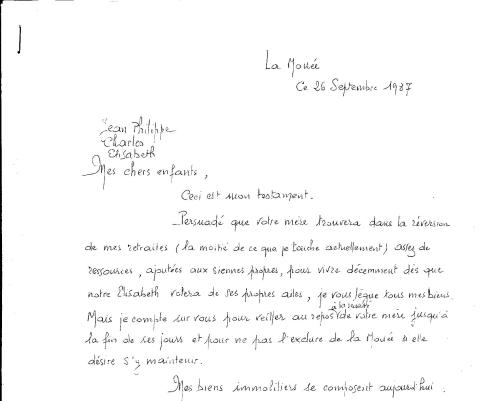 La Mouée
Ce 26 Septembre 1987
Jean Philippe
Charles
Elisabeth
Mes chers enfants,
Ceci est mon testament.
Persuadé que votre mère trouvera dans la réversion
de mes retraites (la moitié de ce que je touche actuellement) assez de
ressources, ajoutées aux siennes propres, pour vivre décemment dès que
notre Elisabeth volera de ses propres ailes, je vous lègue tous mes biens.
Mais je compte sur vous pour veiller au repos de votre mère jusqu'à
la fin de ses jours et pour ne pas l'exclure de la Mouée si elle
désire s'y maintenir.
Mes biens immobiliers se composent aujourd'hui.